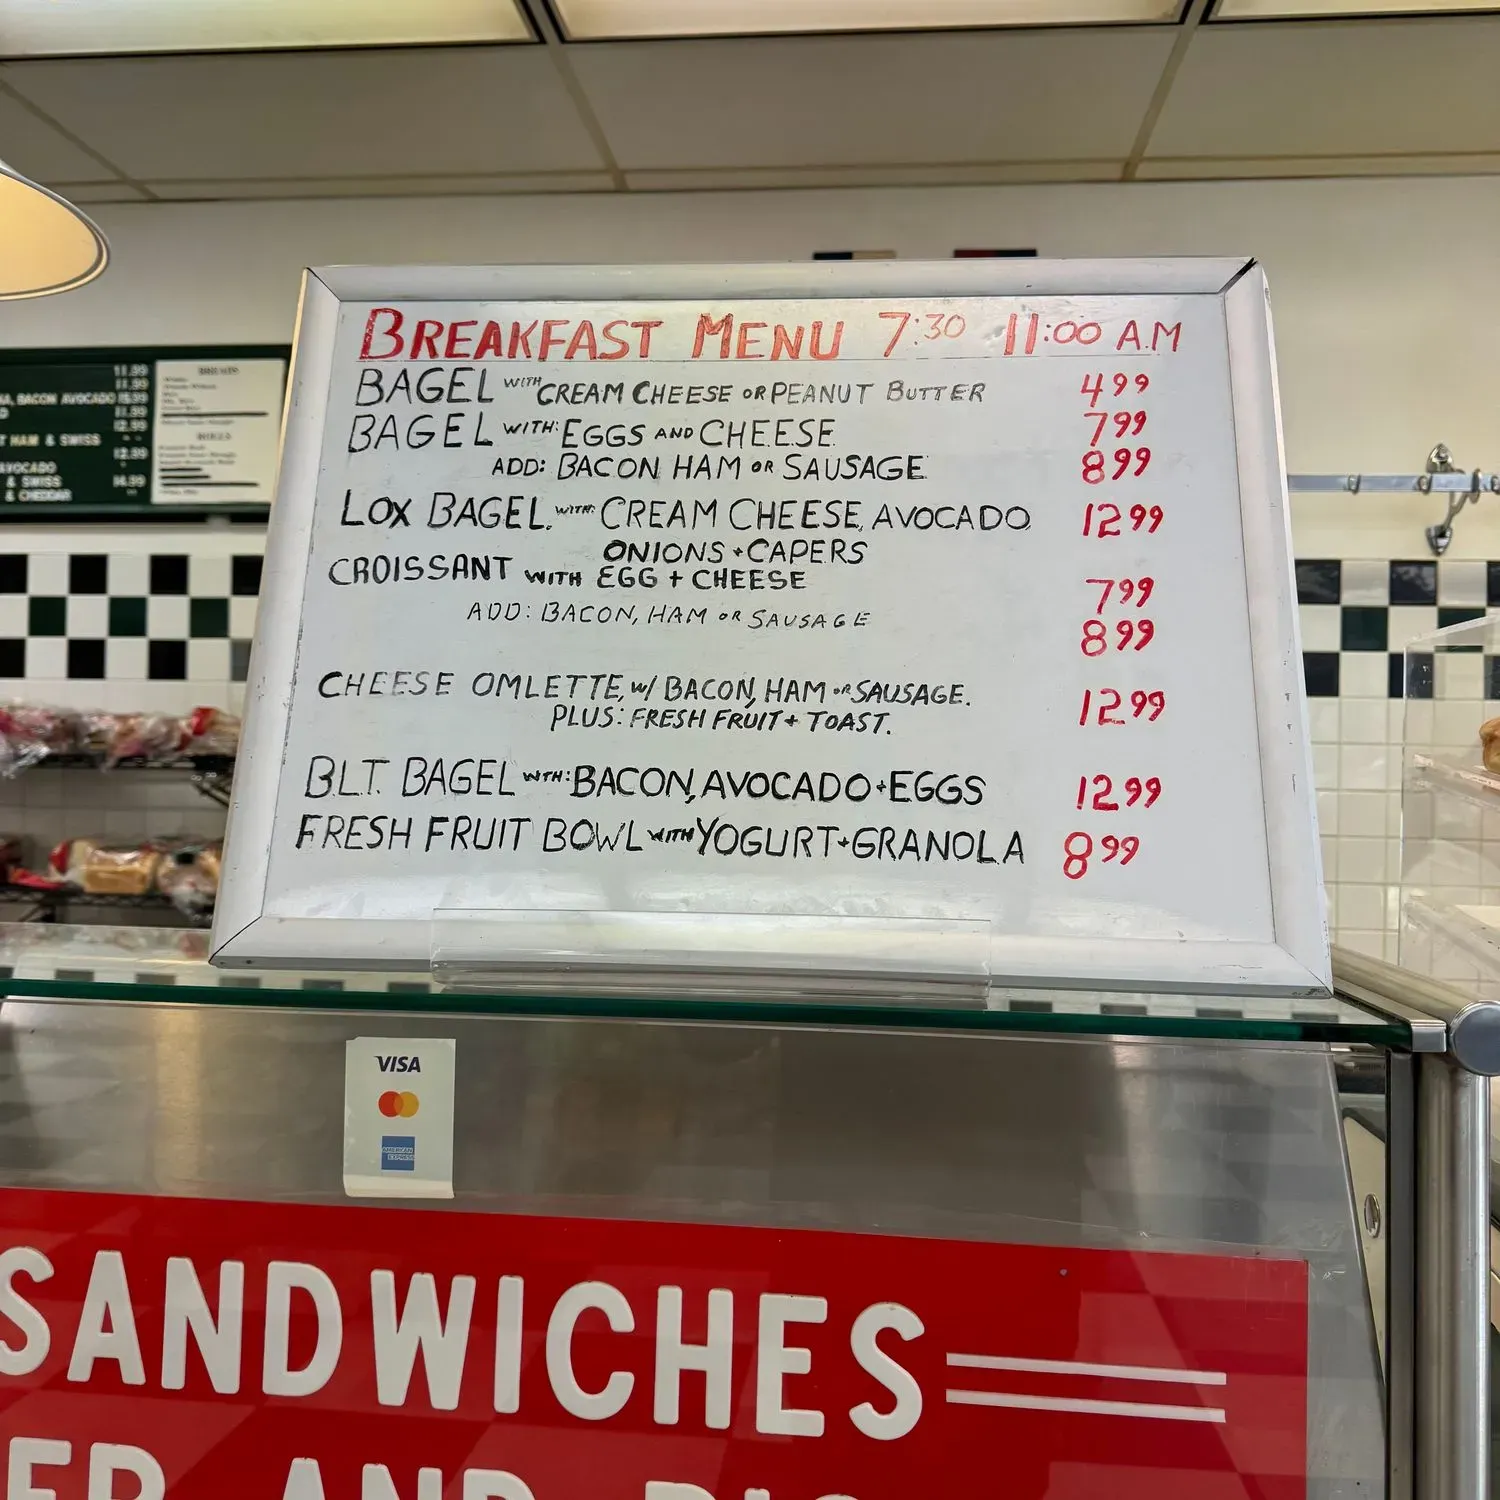 BREAKFAST MENU 7:30 11:00 A.M
BAGEL WITH CREAM CHEESE OR PEANUT BUTTER 499
BAGEL WITH: EGGS AND CHEESE 799
ADD: BACON HAM OR SAUSAGE 899
LOX BAGEL. WITH: CREAM CHEESE, AVOCADO 1299
ONIONS + CAPERS
CROISSANT WITH EGG + CHEESE 799
ADD: BACON, HAM OR SAUSAGE 899
CHEESE OMLETTE, W/ BACON, HAM OR SAUSAGE. 1299
PLUS: FRESH FRUIT + TOAST.
B.L.T. BAGEL WITH: BACON, AVOCADO + EGGS 1299
FRESH FRUIT BOWL WITH YOGURT + GRANOLA 899
11.99
11.99
BACON AVOCADO
11.99
12.99
HAM & SWISS
12.99
AVOCADO
& SWISS 14.99
& CHEDDAR
BREADS
ROLLS
VISA
AMERICAN
EXPRESS
SANDWICHES
AND